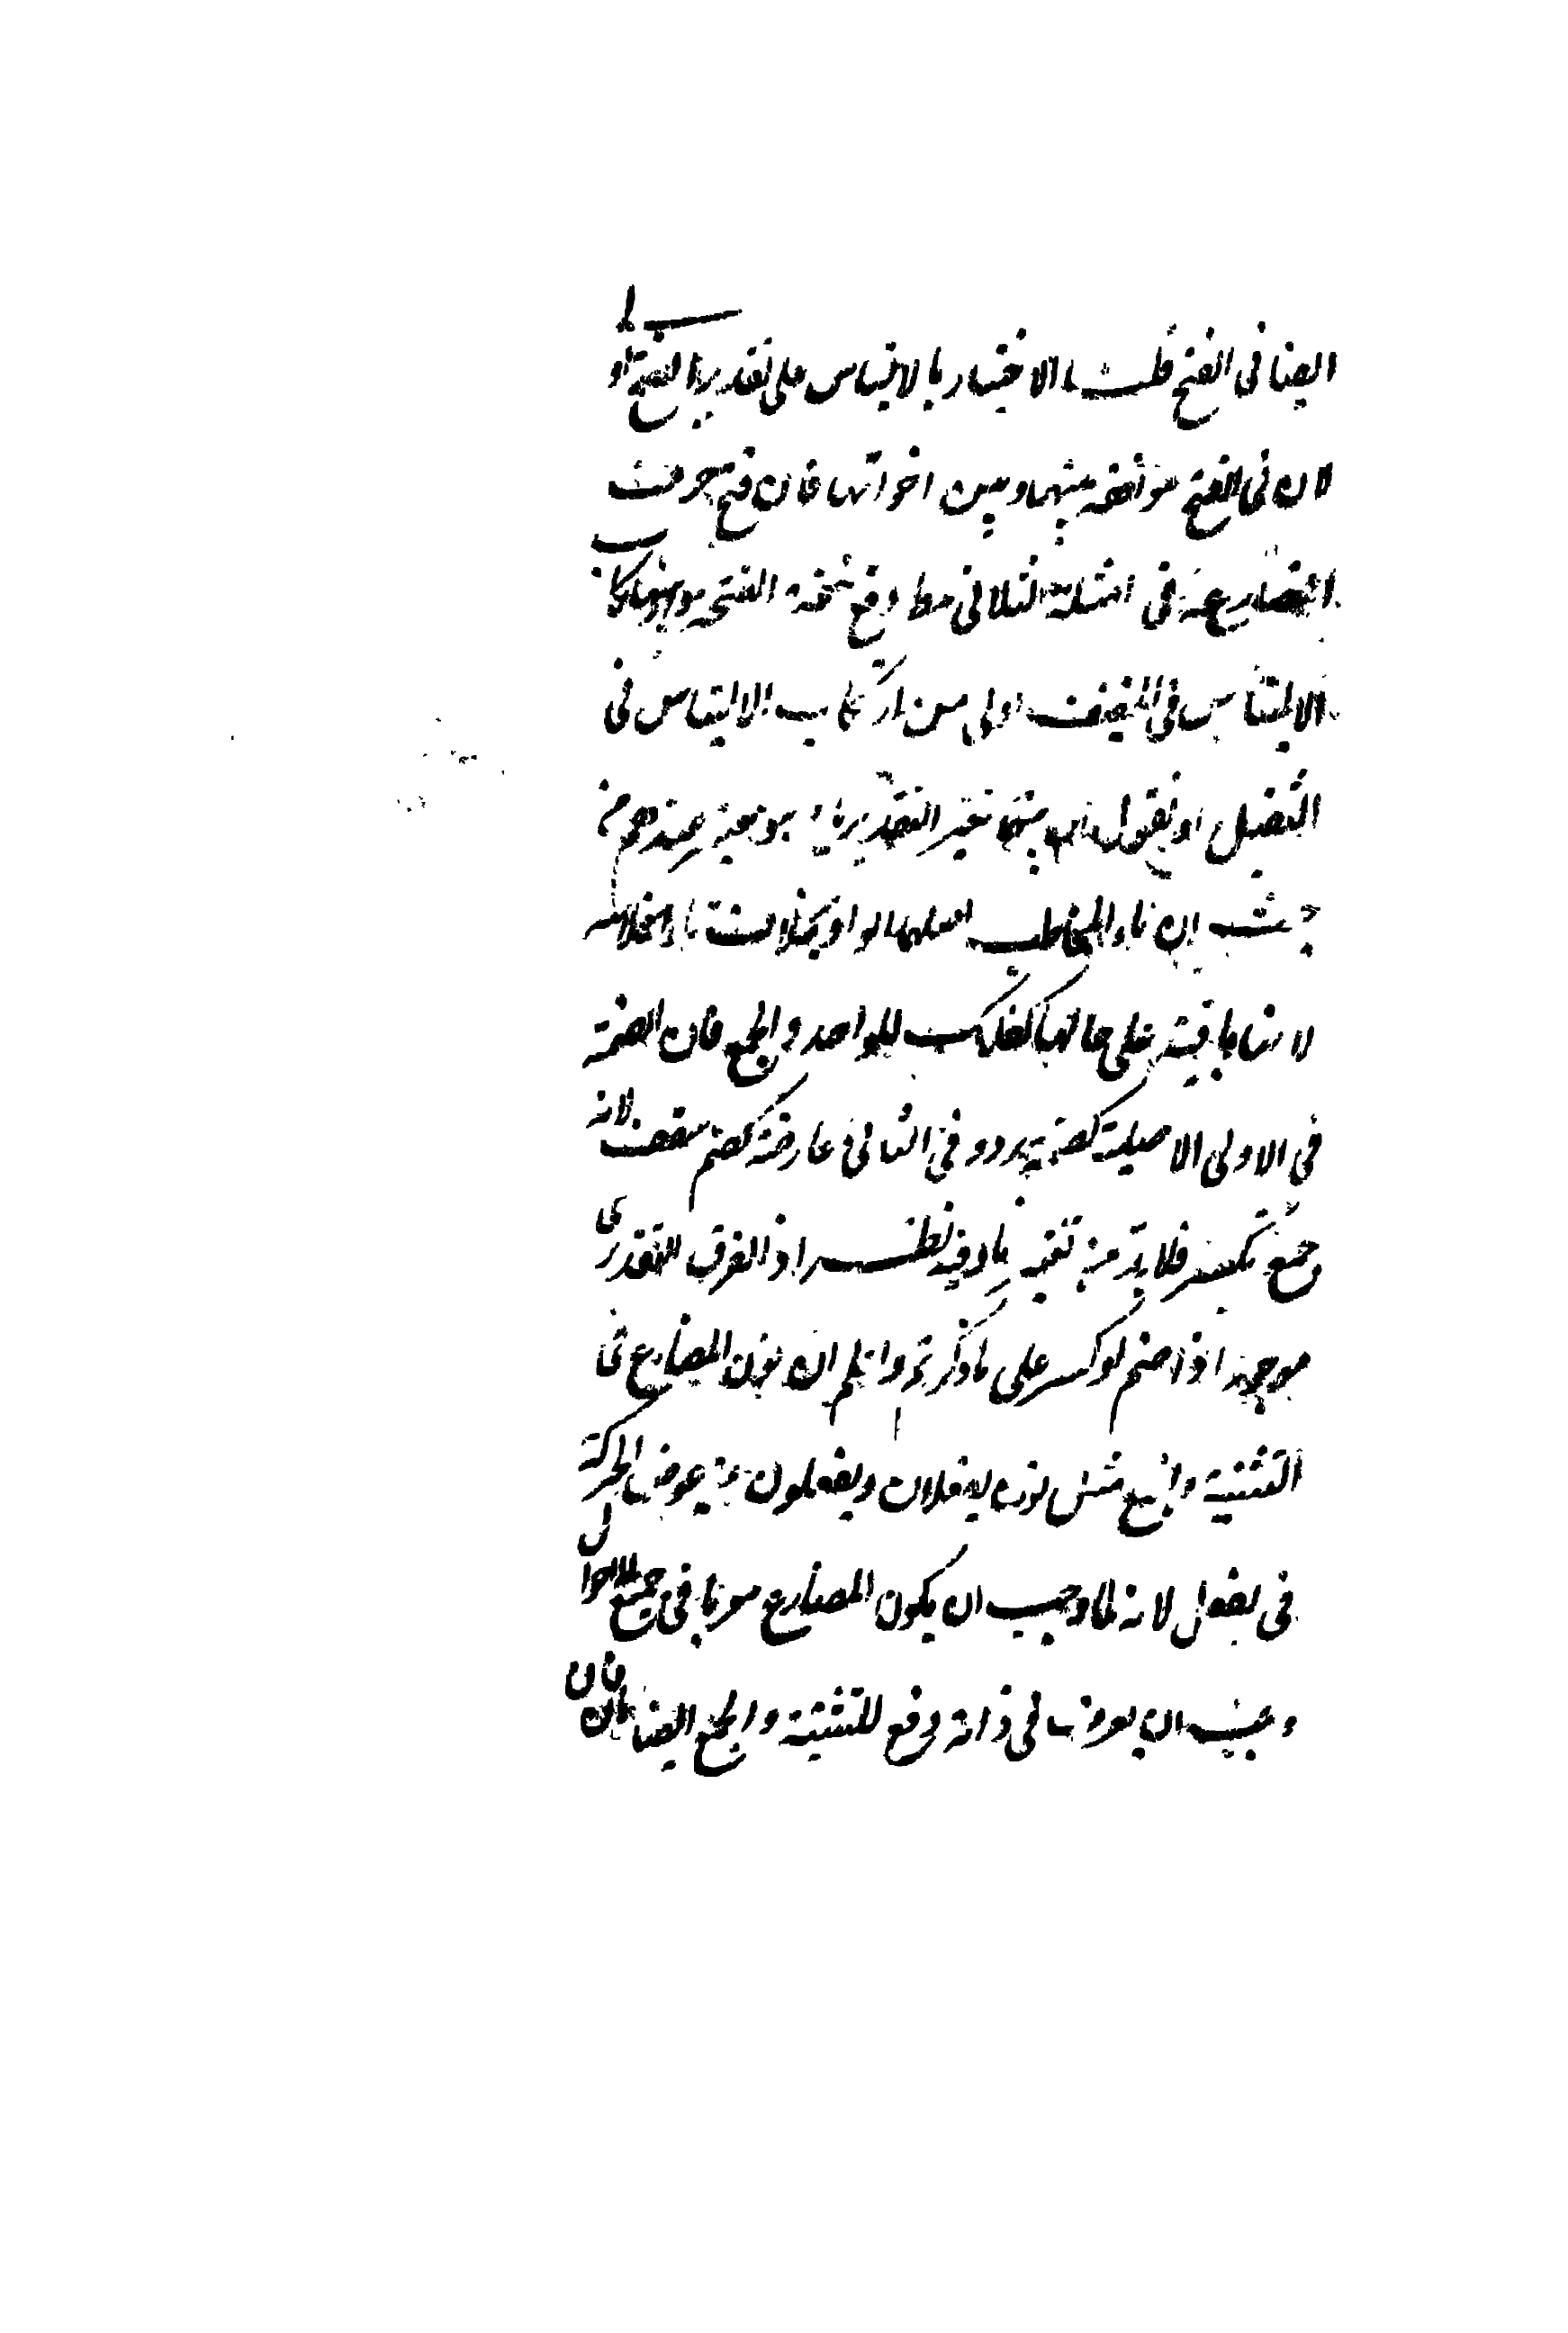 ايضا فى الفتح قلت الاختيار بالالتباس على تقدير الفتح اولى
لان فى الفتح موافقة بينهما وبين اخواتها فان فتح حرف
المضارعة فى امثلة الثلاثى مطاوع خفة الفتحة
الالتباس فى الخفيف اولى من ارتكاب الالتباس فى
الثقيل او نقول ان بينهما تغير التقديرى عندهم من
حيث ان تاء المخاطب اصلها الواو بخلاف تاء
لانها باقية على حالها كفلك للواحد والجمع فان الضمة
فى الاولى الاصلية كضمة برد وفى الثانى عارضة كضم سقف لانه
جمع تكسير فلا بد من تغير ما وفيه نظر اذ الفرق التقديرى
موجود اذا ضم او كسر على ما ذكرتم واعلم ان نون المضارع فى
التثنية والجمع مثل نون يفعلان ويفعلون عوض الحركة
فى يفعل لانه لما وجب ان يكون المضارع معربا فى جميع الاحوال
وجب ان يعرب فى ذاته ورفع للتثنية والجمع ايضا فان